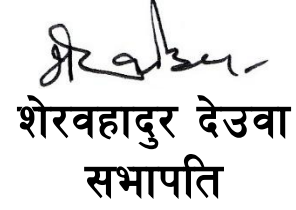 शेरवहादुर देउवा
सभापति